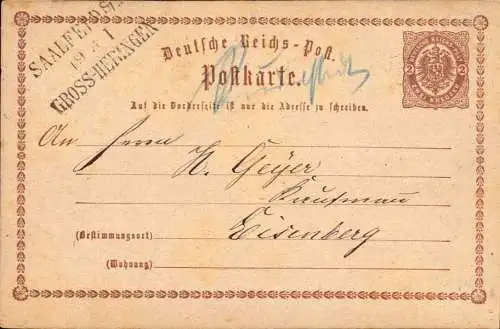 SAALFELD
19 4 1
GROSS-HERINGEN
Deutsche Reichs-Post.
Postkarte.
Auf die Vorderseite ist nur die Adresse zu schreiben.
An Herrn
H. Geyer
Kaufmann
(Bestimmungsort) Eisenberg
(Wohnung)